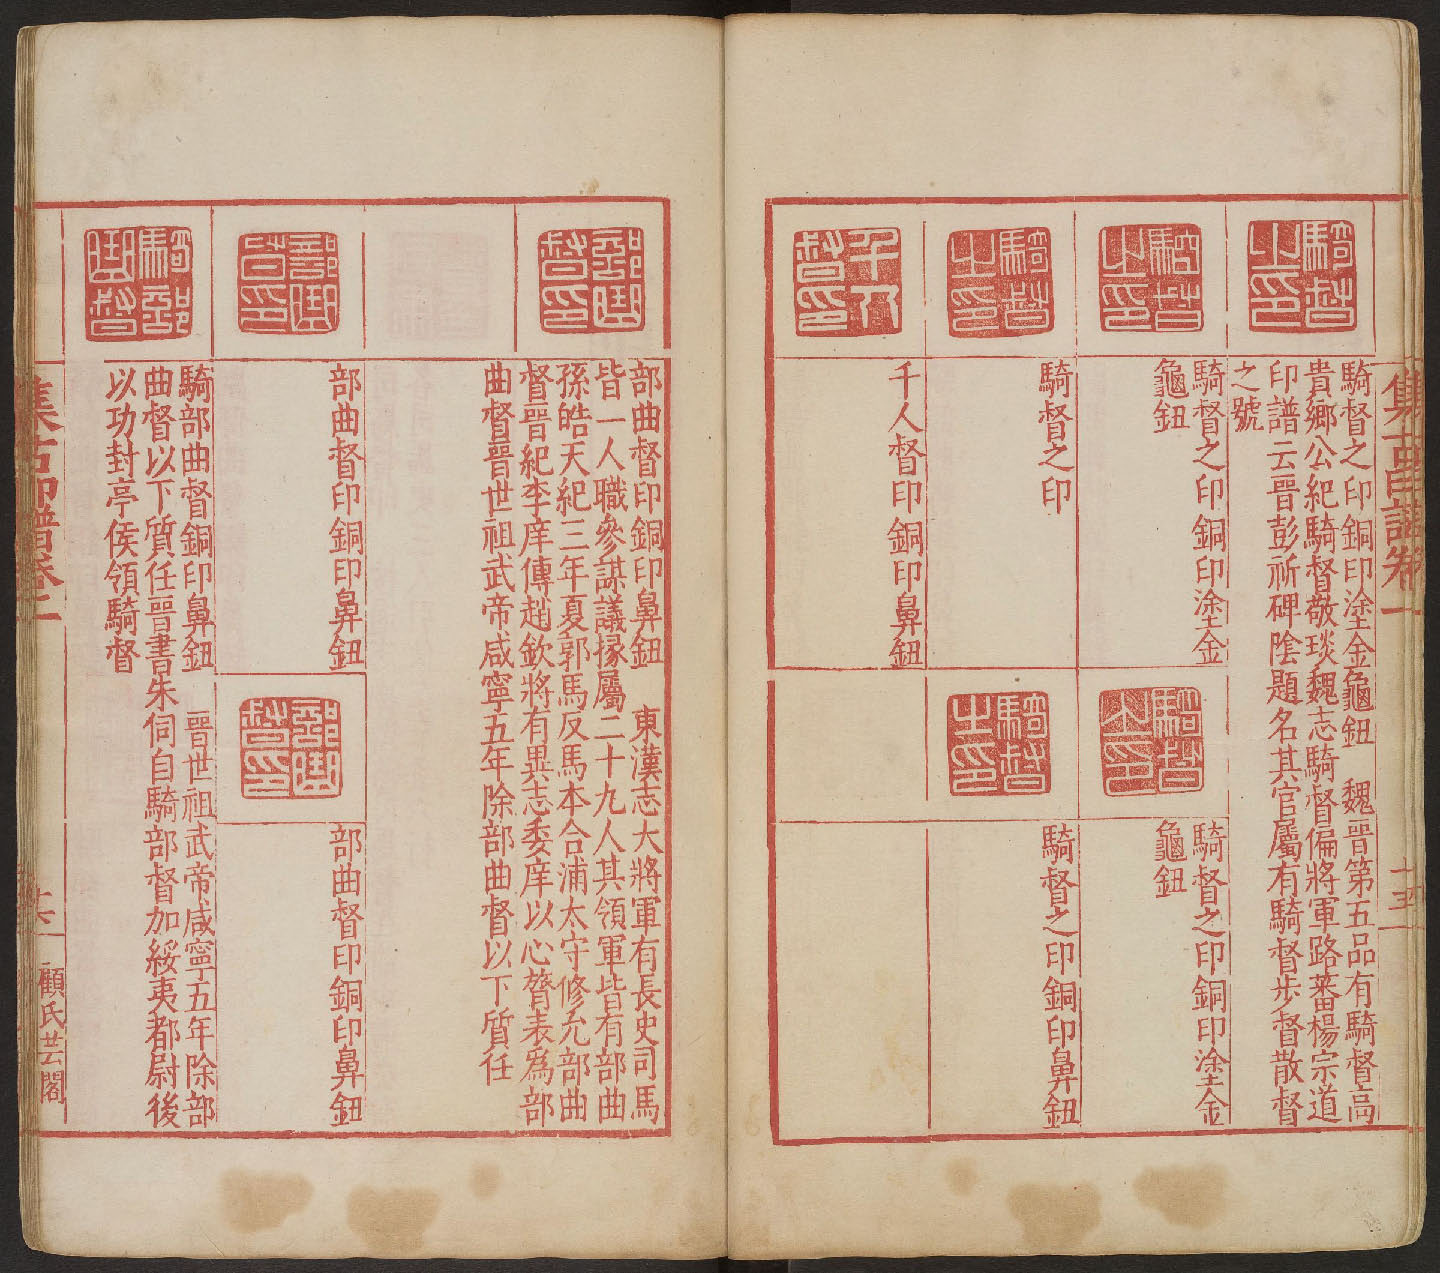 集古印譜卷二
騎督之印
騎督之印銅印塗金龜鈕　魏晉第五品有騎督高
貴鄉公紀騎督敬琰魏志騎督偏將軍路蕃楊宗道
印譜云晉彭祈碑陰題名其官屬有騎督步督散督
之號
騎督之印
騎督之印銅印塗金
龜鈕
騎督之印
騎督之印銅印塗金
龜鈕
騎督之印
騎督之印
騎督之印
騎督之印銅印鼻鈕
千人督印
千人督印銅印鼻鈕
部曲督印
部曲督印銅印鼻鈕　東漢志大將軍有長史司馬
皆一人職參謀議掾屬二十九人其領軍皆有部曲
孫皓天紀三年夏郭馬反馬本合浦太守修允部曲
督晉紀李庠傳趙欽將有異志委庠以心膂表爲部
曲督晉世祖武帝咸寧五年除部曲督以下質任
部曲督印
部曲督印銅印鼻鈕
部曲督印
部曲督印銅印鼻鈕
騎部曲督
騎部曲督銅印鼻鈕　晉世祖武帝咸寧五年除部
曲督以下質任晉書朱伺自騎部督加綏夷都尉後
以功封亭侯領騎督
集古印譜卷二
顧氏芸閣